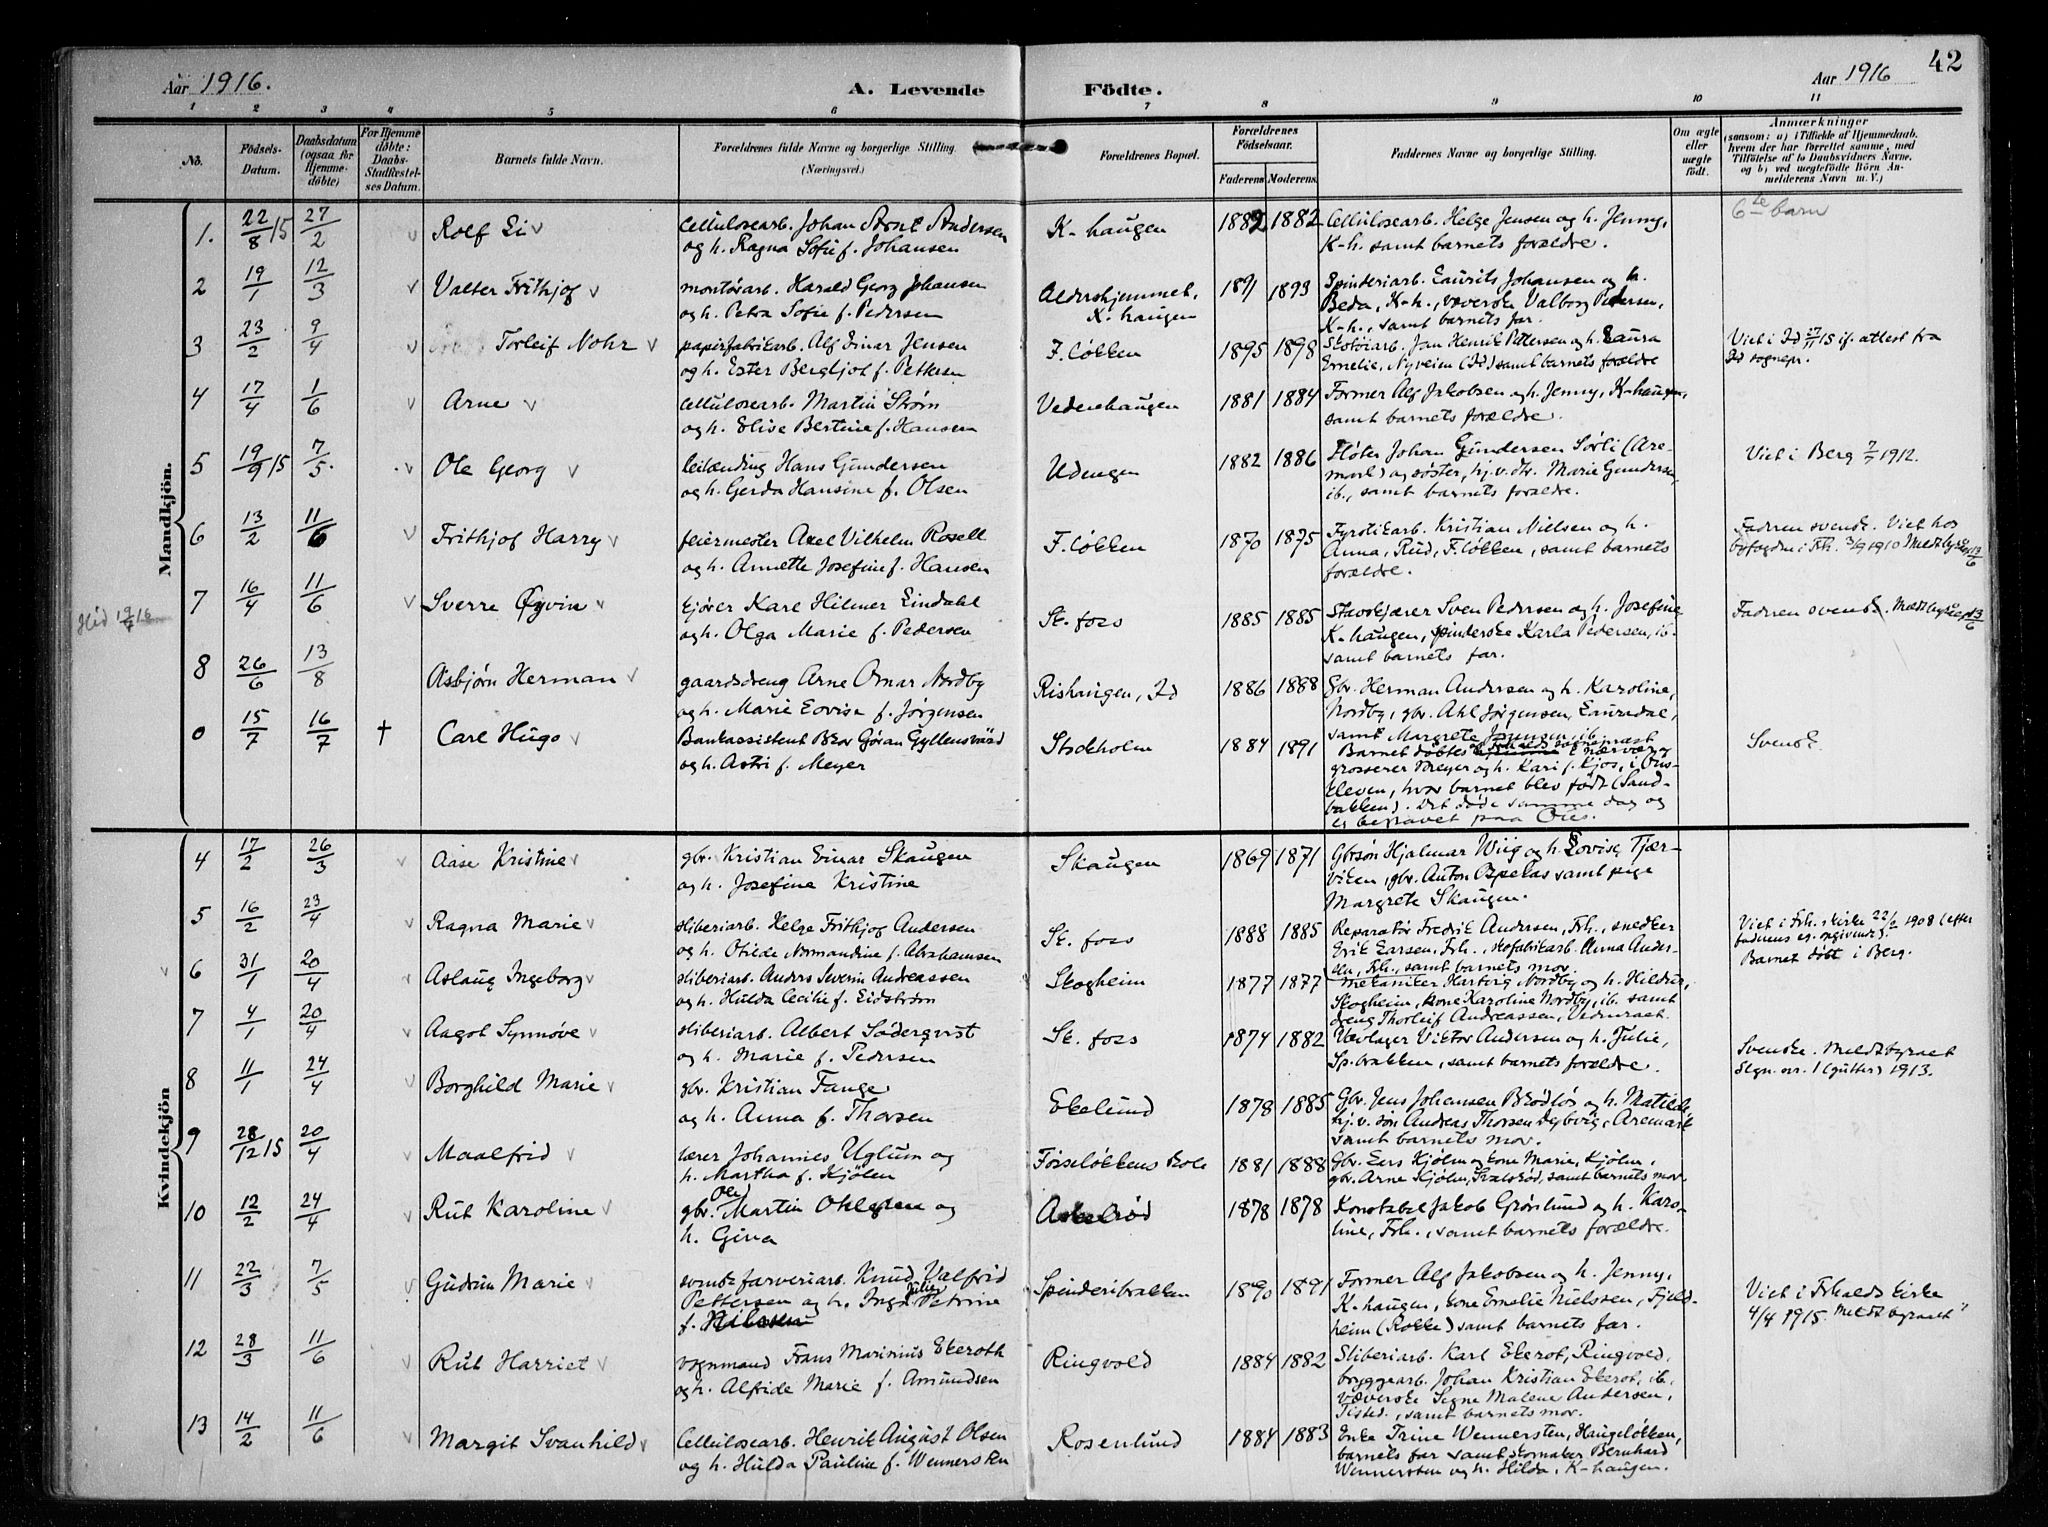 Aar 1916.
A. Levende Födte.
Aar 1916
42
1 2 3 4 5 6 7 8 9 10 11
No.
Födsels-
Datum.
Daabsdatum
(ogsaa for
Hjemme-
döbte)
For Hjemme
döbte:
Daabs-
Stadfæstel-
ses Datum.
Barnets fulde Navn.
Forældrenes fulde Navne og borgerlige Stilling.
(Næringsvei.)
Forældrenes Bopæl.
Forældrenes
Födselsaar.
Faderens Moderens
Faddernes Navne og borgerlige Stilling.
Om ægte
eller
uægte
födt.
Anmærkninger
(saasom: a) i Tilfælde af Hjemmedaab.
hvem der har forrettet samme, med
Tilföielse af to Daabsvidners Navne.
og b) ved uægtefödte Börn An-
melderens Navn m. V.)
Mandkjön.
1. 22/8 15 27/2 Rolf Ei
Cellulosearb. Johan Arnt Andersen
og h. Ragna Sofie f. Johansen
K-haugen 1882 1882
Cellulosearb. Helge Jensen og h. Jenny,
K-h. samt barnets forældre.
6te barn
2 19/1 12/3 Valter Frithjof
montörarb. Harald Georg Johansen
og h. Petra Sofie f. Pedersen
Aldershjemmet,
K-haugen
1891 1893
Spinderiarb. Laurits Johansen og h.
Beda, K-h., væverske Valborg Pedersen,
K-h., samt barnets far.
3 23/2 9/4 Torleif Nohr
papirfabrikarb. Alf Einar Jensen
og h. Ester Bergljot f. Pettersen
F. løkken 1895 1898
Skotöiarb. Jan Henrik Pettersen og h. Laura
Emelie, Nyveien (Id) samt barnets forældre
Viet i Id 27/11 15 if. attest fra
Id sognepr.
4 17/4 1/6 Arne
Cellulosearb. Martin Strøm
og h. Elise Bertine f. Hansen
Vedenhaugen 1881 1884
Former Alf Jakobsen og h. Jenny, K-haugen,
samt barnets forældre.
5 19/9 15 7/5 Ole Georg
leilænding Hans Gundersen
og h. Gerda Hansine f. Olsen
Udengen 1882 1886
Fløter Johan Gundersen Sørli (Are-
mark) og søster, hj.v.dtr. Marie Gundersen,
ib., samt barnets forældre.
Viet i Berg 7/7 1912.
6 13/2 11/6 Frithjof Harry
feiermester Axel Vilhelm Rosell
og h. Annette Josefine f. Hansen
F. løkken 1870 1875
Fyrstikarb. Kristian Nilsen og h.
Anna, Rud, F. løkken, samt barnets
forældre.
Fadren svensk. Viet hos
byfogden i Frh. 3/9 1910 Meldt byraaet 13/6
Hid 19/7 16
7 16/4 11/6 Sverre Øyvin
kjører Karl Hilmer Lindahl
og h. Olga Marie f. Pedersen
Sk. foss 1885 1885
Stavskjærer Sven Pedersen og h. Josefine
K-haugen, spinderske Karla Pedersen, ib.
samt barnets far.
Fadren svensk. Meldt byraaet 13/6
8 26/6 13/8 Asbjørn Herman
gaardsdreng Arne Omar Nordby
og h. Marie Lovise f. Jørgensen
Rishaugen, Id 1886 1888
Gbr. Herman Andersen og h. Karoline,
Nordby, gbr. Ahl Jørgensen, Lauredal,
samt Margrete Jensen, ib.
0 15/7 16/7 † Carl Hugo
Bankassistent Bror Göran Gyllensvärd
og h. Astri f. Meyer
Stockholm 1884 1891
Barnet døbtes i nærvær af
grosserer Meyer og h. Kari f. Kjos, i Ous-
kleven, hvor barnet blev født (Sand-
bakken). Det døde samme dag og
er begravet paa Ous.
Svensk.
Kvindekjön
4 17/2 26/3 Aase Kristine
gbr. Kristian Einar Skaugen
og h. Josefine Kristine
Skaugen 1869 1871
Gbrsøn Hjalmar Wiig og h. Lovise, Tjær-
viken, gbr. Anton Ospelas samt pige
Margrete Skaugen.
5 16/2 23/4 Ragna Marie
sliberiarb. Helge Frithjof Andersen
og h. Otilde Normandine f. Abrahamsen
Sk. foss 1888 1885
Reparatør Fredrik Andersen, Frh., snedker
Erik Larsen, Frh., skofabrikarb. Anna Ander-
sen, Frh., samt barnets mor.
Viet i Frh. kirke 22/2 1908 (efter
faderens eg. opgivende).
Barnet døbt i Berg.
6 31/1 20/4 Aslaug Ingeborg
sliberiarb. Anders Severin Andreassen
og h. Hulda Cecilie f. Eidstrøm
Skogheim 1877 1877
mekaniker Hartvig Nordby og h. Hildur,
Skogheim, kone Karoline Nordby, ib. samt
dreng Thorleif Andreassen, Vedenraet.
7 4/1 20/4 Aagot Synnøve
sliberiarb. Albert Söderqvist
og h. Marie f. Pedersen
Sk. foss 1874 1882
Vævlager Viktor Andersen og h. Julie,
Sp.brakken, samt barnets forældre.
Svenske. Meldt byraaet
Slgn. nr. 1 (gutter) 1913.
8 11/1 24/4 Borghild Marie
gbr. Kristian Tange
og h. Anna f. Thorsen
Ekelund 1878 1885
Gbr. Jens Johansen Brødløs og h. Matilde,
hj.v. søn Andreas Thorsen Dybvig, Aremark
samt barnets mor.
9 28/12 15 20/4 Maalfrid
lærer Johannes Uglum og
h. Martha f. Kjølen
Førsløkkens skole 1881 1888
Gbr. Lars Kjølen og kone Marie, Kjølen,
gbr. Arne Kjølen, samt barnets mor.
10 12/2 24/4 Rut Karoline
gbr. Martin Ole Ohlgren og
h. Gina
Askelrød 1878 1878
Konstabel Jakob Grønlund og h. Karo-
line, Frh., samt barnets forældre.
11 22/3 7/5 Gudrun Marie
svensk farveriarb. Knud Valfrid
Pettersen og h. Inga Julie Petrine
f. Nilssen
Spinderibrakken 1890 1891
Former Alf Jakobsen og h. Jenny,
K-haugen, kone Emelie Nielssen, Fjeld-
heim (Rokke) samt barnets far.
Viet i Frhalds kirke
4/4 1915. Meldt byraaet
12 28/3 11/6 Rut Harriet
vognmand Frans Marinius Ekeroth
og h. Alfride Marie f. Amundsen
Ringvold 1884 1882
Sliberiarb. Karl Ekerot, Ringvold,
bryggearb. Johan Kristian Ekerot, ib.,
væverske Signe Malene Andersen,
Tisted., samt barnets mor.
13 14/2 11/6 Margit Svanhild
Cellulosearb. Henrik August Olsen
og h. Hulda Pauline f. Wennersten
Rosenlund 1884 1883
Enke Trine Wennersten, Haugeløkken,
barnets far samt skomaker Bernhard
Wennersten og h. Hilda, K-haugen.